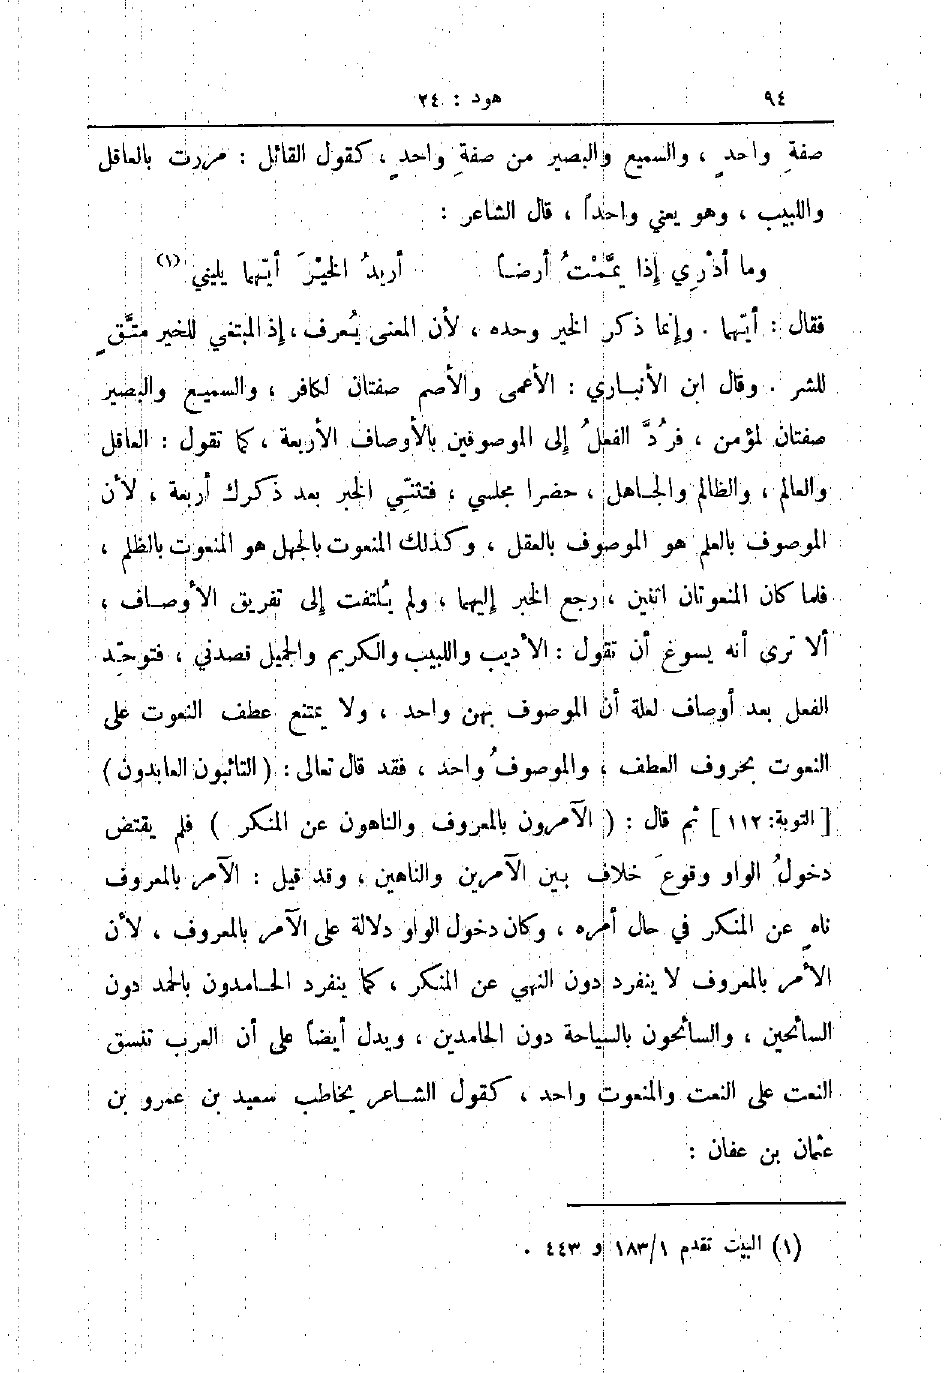 ٩٤
هود : ٢٤
صفةِ واحدٍ ، والسميع والبصير من صفةِ واحدٍ ، كقول القائل : مررت بالعاقل
واللبيب ، وهو يعني واحداً ، قال الشاعر :
وما أدْرِي إذا يمَّمْتُ أرضاً أريدُ الخيْرَ أيّهما يليني (١)
فقال : أيّهما . وإنما ذكر الخير وحده ، لأن المعنى يُعرف ، إذ المبتغي للخير متَّقٍ
للشر . وقال ابن الأنباري : الأعمى والأصم صفتان لكافر ، والسميع والبصير
صفتان لمؤمن ، فرُدَّ الفعلُ إلى الموصوفين بالأوصاف الأربعة ، كما تقول : العاقل
والعالم ، والظالم والجاهل ، حضرا مجلسي ، فتثنّي الخبر بعد ذكرك أربعة ، لأن
الموصوف بالعلم هو الموصوف بالعقل ، وكذلك المنعوت بالجهل هو المنعوت بالظلم ،
فلما كان المنعوتان اثنين ، رجع الخبر إليهما ، ولم يُلتفت إلى تفريق الأوصاف ،
ألا ترى أنه يسوغ أن تقول : الأديب واللبيب والكريم والجميل قصدني ، فتوحّد
الفعل بعد أوصاف لعلة أن الموصوف بهن واحد ، ولا يمتنع عطف النعوت على
النعوت بحروف العطف ، والموصوفُ واحد ، فقد قال تعالى : ( التائبون العابدون )
[ التوبة: ١١٢ ] ثم قال : ( الآمرون بالمعروف والناهون عن المنكر ) فلم يقتض
دخولُ الواو وقوعَ خلاف بين الآمرين والناهين ، وقد قيل : الآمر بالمعروف
ناهٍ عن المنكر في حال أمره ، وكان دخول الواو دلالة على الآمر بالمعروف ، لأن
الأمر بالمعروف لا ينفرد دون النهي عن المنكر ، كما ينفرد الحامدون بالحمد دون
السائحين ، والسائحون بالسياحة دون الحامدين ، ويدل أيضاً على أن العرب تنسق
النعت على النعت والمنعوت واحد ، كقول الشاعر يخاطب سعيد بن عمرو بن
عثمان بن عفان :
(١) البيت تقدم ١٨٣/١ و ٤٤٣ .